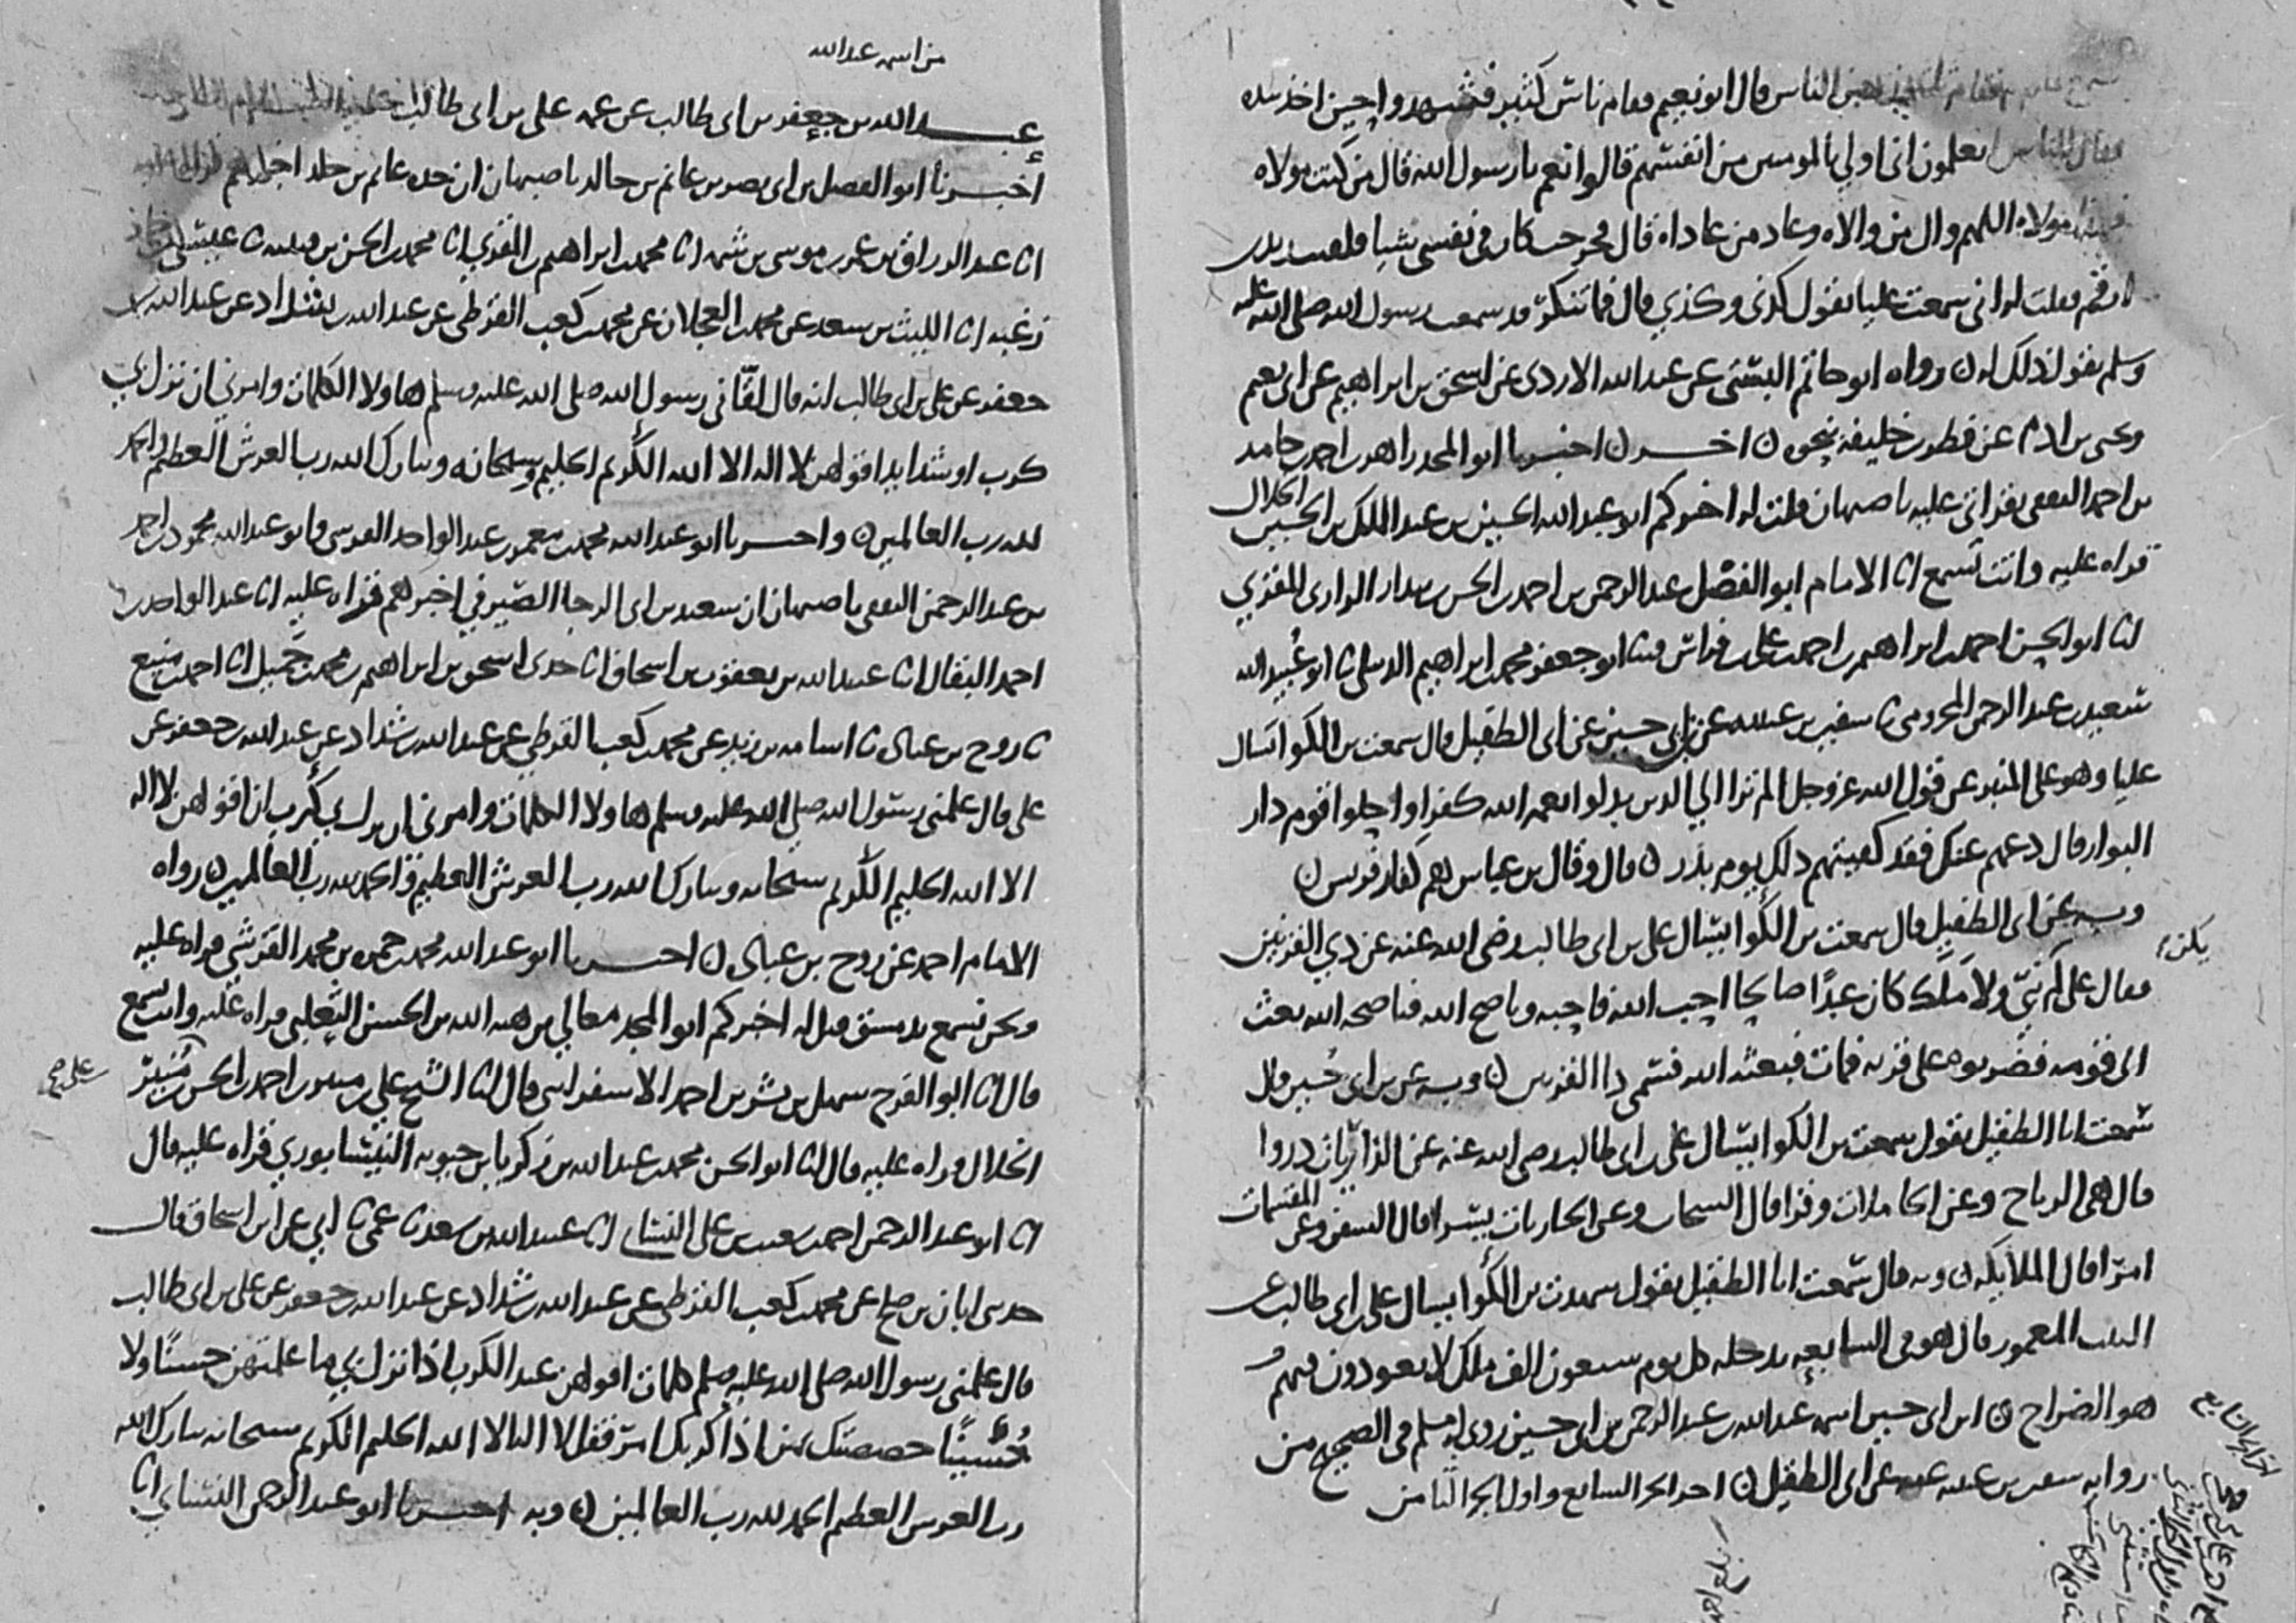 الناس قال ابو نعيم فقام ناس كثير فشهدوا حين اخذ بيده
فقال للناس اتعلمون اني اولي بالمومنين من انفسهم قالوا نعم يا رسول الله قال من كنت مولاه
مولاه اللهم وال من والاه وعاد من عاداه قال فخرجت كان في نفسي شيا فلقيت زيد بن
ارقم فقلت له اني سمعت عليا يقول كذي وكذي قال فما تنكر قد سمعت رسول الله صلى الله عليه
وسلم يقول ذلك له ن رواه ابو حاتم البستي عن عبد الله الازدي عن اسحق بن ابراهيم عن ابي نعيم
ويحيى بن ادم عن فطر بن خليفة بنحوه ن اخر ن اخبرنا ابو المجد زاهر بن احمد بن حامد
بن احمد الثقفي بقراتي عليه باصبهان قلت له اخبركم ابو عبد الله الحسين بن عبد الملك بن الحسين الخلال
قراه عليه وانت تسمع انا الامام ابو الفضل عبد الرحمن بن احمد بن الحسن بن بندار الرازي المقري
انا ابو الحسن احمد بن ابراهيم بن احمد بن علي بن فراس ثنا ابو جعفر محمد بن ابراهيم الديبلي ثنا ابو عبيد الله
سعيد بن عبد الرحمن المخزومي ثنا سفين بن عيينه عن بن ابي حسين عن ابي الطفيل قال سمعت بن الكوا سال
عليا وهو على المنبر عن قول الله عز وجل الم تر الي الذين بدلوا نعمه الله كفرا واحلوا قومهم دار
البوار قال دعهم عنك فقد كفيتهم ذلك يوم بدر ن قال وقال بن عباس هم كفار قريش ن
وبه عن ابي الطفيل قال سمعت بن الكوا يسال علي بن ابي طالب رضي الله عنه عن ذي القرنين
يكن
فقال علي لم نبي ولا ملك كان عبدا صالحا احب الله فاحبه وناصح الله فناصحه الله بعث
الى قومه فضربوه على قرنه فمات فبعثه الله فسمي ذا القرنين ن وبه عن بن ابي حسين قال
سمعت ابا الطفيل يقول سمعت بن الكوا يسال علي بن ابي طالب رضي الله عنه عن الذاريات ذروا
قال هي الرياح وعن الحاملات وقرا قال السحاب وعن الجاريات يسرا قال السفن وعن المقسمات
امرا قال الملايكه ن وبه قال سمعت ابا الطفيل يقول سمعت بن الكوا يسال علي بن ابي طالب عن
البيت المعمور قال هو في السابعه يدخله كل يوم سبعون الف ملك لا يعودون فيهم
هو الضراح ن ابن ابي حسين اسمه عبد الله بن عبد الرحمن بن ابي حسين روى له مسلم في الصحيح من
روايه سفين بن عيينه عنه عن ابي الطفيل ن اخر الجز السابع واول الجز الثامن
من اسمه عبد الله
عبد الله بن جعفر بن ابي طالب عن عمه علي بن ابي طالب
اخبرنا ابو الفضل بن ابي نصر بن غانم بن خالد باصبهان ان جده غانم بن خالد اخبرهم
انا عبد الرزاق بن عمر بن موسى بن شمه انا محمد بن ابراهيم بن المقري انا محمد بن الحسن بن قتيبه ثنا عيسى بن حماد
زغبه انا الليث بن سعد عن محمد بن العجلان عن محمد بن كعب القرظي عن عبد الله بن شداد عن عبد الله بن
جعفر عن علي بن ابي طالب انه قال لقاني رسول الله صلى الله عليه وسلم هاولا الكلمات وامرني ان نزل بي
كرب او شدايد اقولهن لا اله الا الله الكريم الحليم وسبحانه وتبارك الله رب العرش العظيم والحمد
لله رب العالمين ن واخبرنا ابو عبد الله محمد بن معمر بن عبد الواحد القرشي وابو عبد الله محمود بن احمد
بن عبد الرحمن الثقفي باصبهان ان سعيد بن ابي الرجا الصيرفي اخبرهم قراه عليه انا عبد الواحد بن
احمد البقال انا عبيد الله بن يعقوب بن اسحاق انا جدي اسحق بن ابراهيم بن محمد بن جميل انا احمد بن منيع
ثنا روح بن عباده ثنا اسامه بن زيد عن محمد بن كعب القرظي عن عبد الله بن شداد عن عبد الله بن جعفر عن
علي قال علمني رسول الله صلى الله عليه وسلم هاولا الكلمات وامرني ان نزل بي كرب ان اقولهن لا اله
الا الله الحليم الكريم سبحانه وتبارك الله رب العرش العظيم والحمد لله رب العالمين ن رواه
الامام احمد عن روح بن عباده ن اخبرنا ابو عبد الله محمد بن حمزه بن محمد القرشي قراه عليه
ونحن نسمع بدمشق قيل له اخبركم ابو المجد معالي بن هبه الله بن الحسن الثعلبي قراه عليه وانت تسمع
قال انا ابو الفرج سهل بن بشر بن احمد الاسفرايني قال انا الشيخ علي بن منير بن احمد بن الحسن بن منير
الخلال قراه عليه قال انا ابو الحسن محمد بن عبد الله بن زكريا بن حيويه النيسابوري قراه عليه قال
انا ابو عبد الرحمن احمد بن شعيب بن علي النساي انا عبيد الله بن سعد ثنا عمي ثنا ابي عن ابن اسحاق قال
حدثني ابان بن صالح عن محمد بن كعب القرظي عن عبد الله بن شداد عن عبد الله بن جعفر عن علي بن ابي طالب
قال علمني رسول الله صلى الله عليه وسلم كلمات اقولهن عند الكرب اذا نزل بي ما علمتهن حسنا ولا
حسينا خصصتك بهن اذا كربك امر فقل لا اله الا الله الحليم الكريم سبحانه تبارك الله
رب العرش العظيم الحمد لله رب العالمين ن وبه اخبرنا ابو عبد الرحمن النساي انا